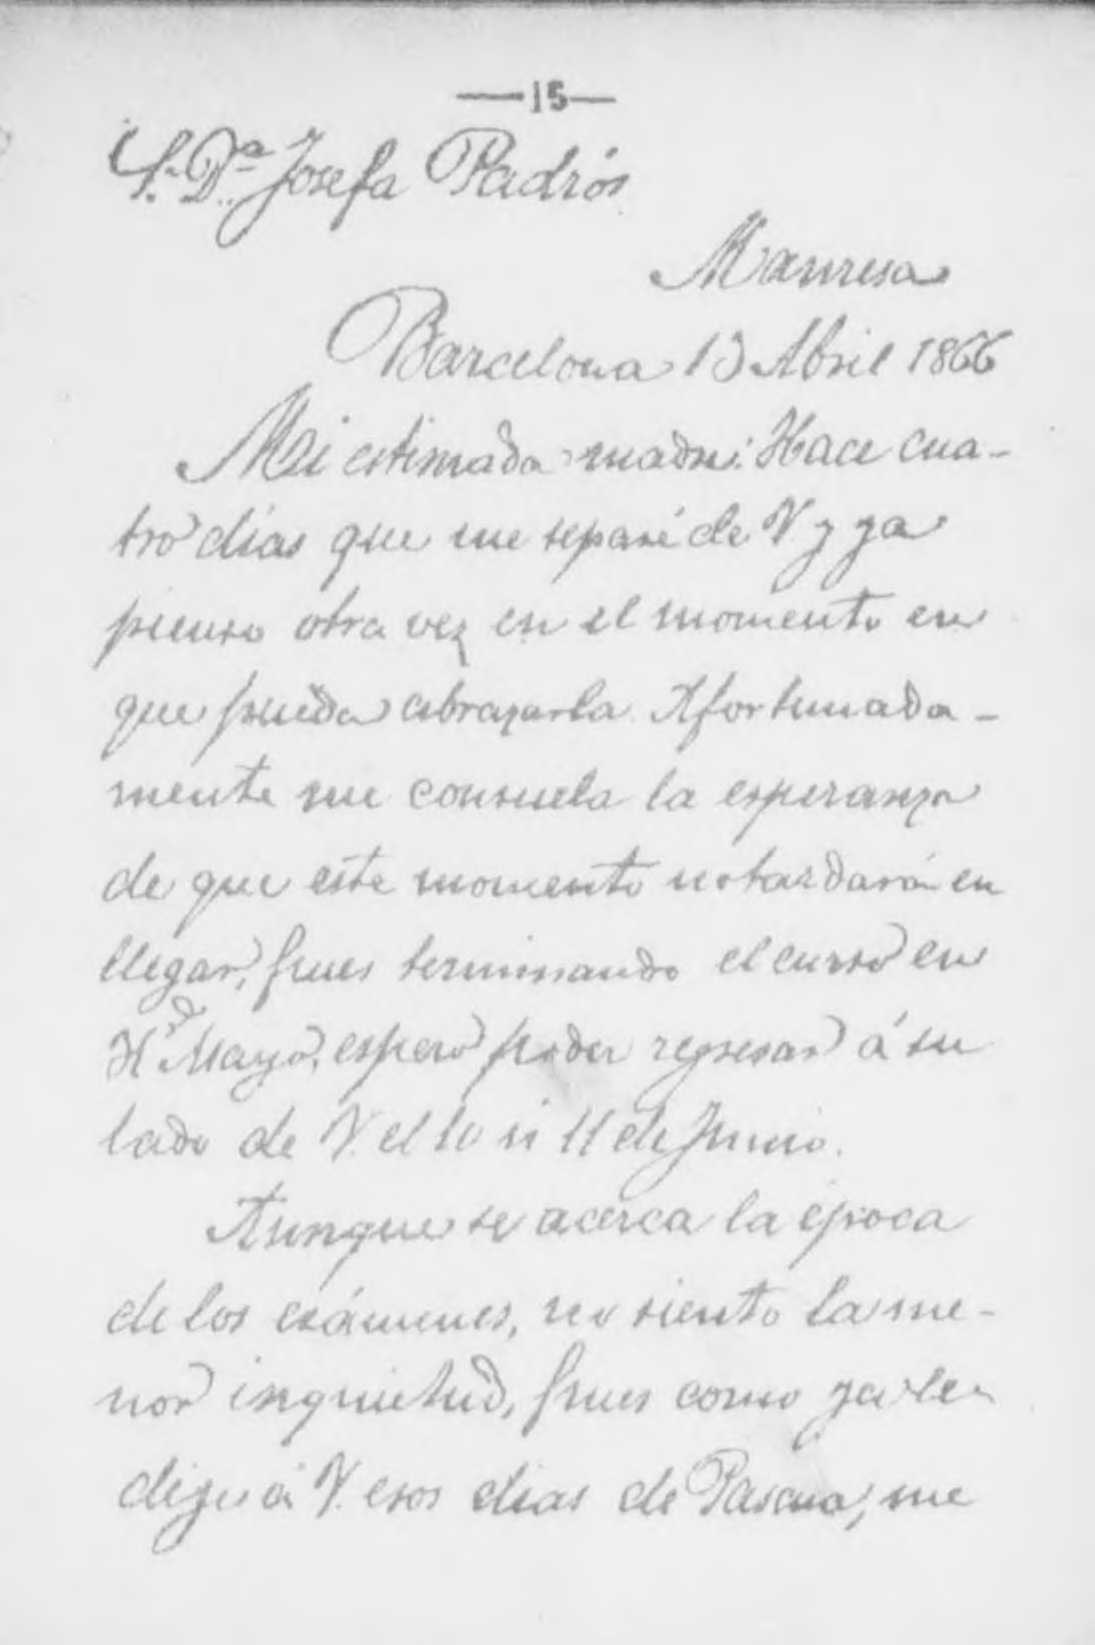 —15—
S.ª D.ª Josefa Padrós
Manresa
Barcelona 13 Abril 1866
Mi estimada madre: Hace cua-
tro días que me separé de V y ya
pienso otra vez en el momento en
que pueda abrazarla. Afortunada-
mente me consuela la esperanza
de que este momento no tardará en
llegar, pues terminando el curso en
Mayo, espero poder regresar á su
lado de V. el 10 u 11 de Junio.
Aunque se acerca la época
de los exámenes, no siento la me-
nor inquietud, pues como ya le
dije á V. esos dias de Pascua, me